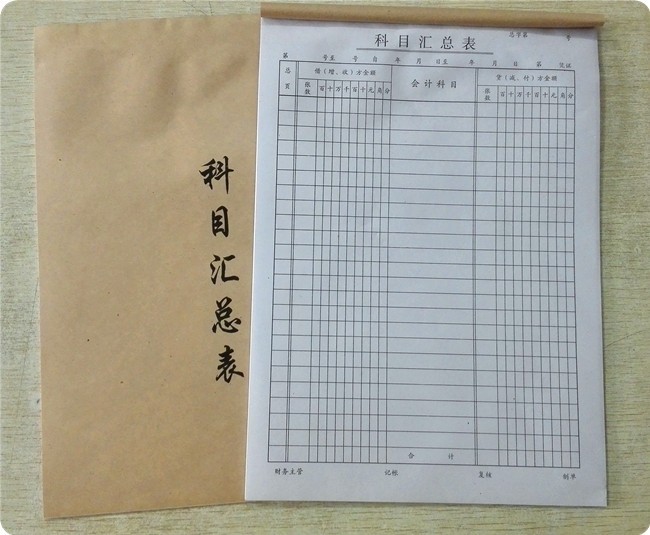 科目汇总表
科目汇总表
总字第 号
第 号至 号 自 年 月 日至 年 月 日 第 页证
总页 借（增、收）方金额 会计科目 贷（减、付）方金额
张数 百十万千百十元角分 张数 百十万千百十元角分
合计
财务主管 记帐 复核 制单